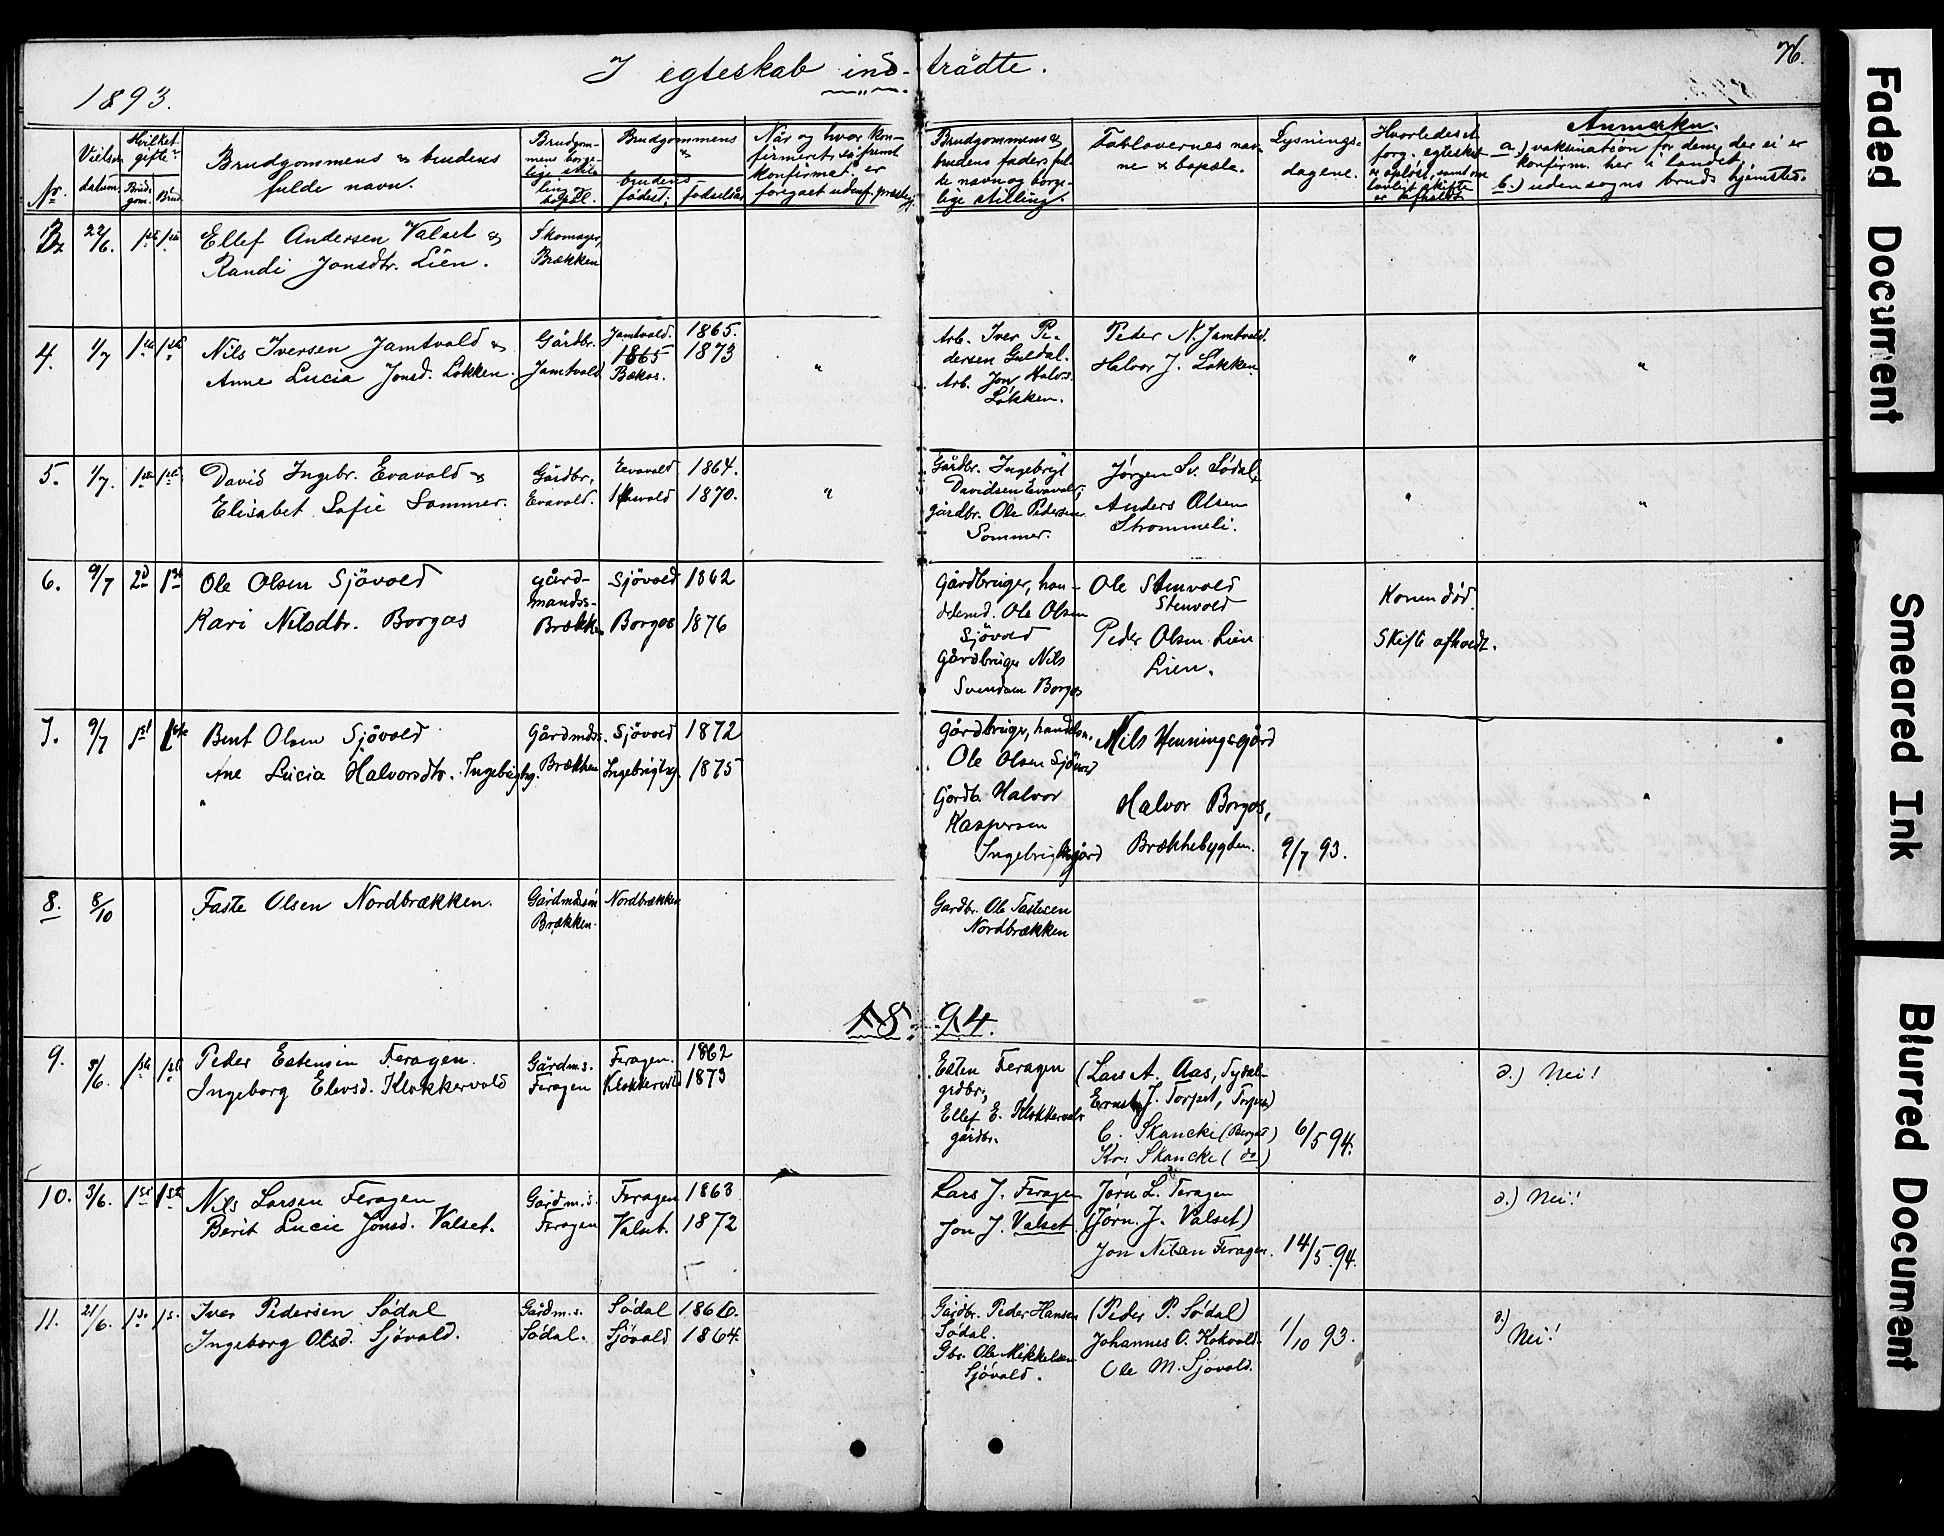 I egteskab ind-trådte.
76.
1893.
Nr.
Vielses datum.
Hvilket gifte
Brudgom. Brud.
Brudgommens & brudens fulde navn.
Brudgommens borgelige stilling & bopæl.
Brudgommens & brudens
fødest. fødselsår
Når og hvor konfirmeret, såfremt konfirmat. er foregået udenf. præstegj.
Brudgommens & brudens faders fulde navn og borgelige stilling.
Forlovernes navne & bopæle.
Lysnings-dagene.
Hvorledes et forr. egteskab er opløst, samt om lovligt skifte er afholdt
Anmærkn.
a.) vaksination for dem, der ei er konfirm. her i landet.
b.) udensogns bruds hjemsted.
3. 22/6. 1ste 1ste
Ellef Andersen Valset &
Randi Jonsdtr. Lien.
Skomager,
Brækken
4. 1/7 1ste 1ste
Nils Iversen Jamtvold &
Anne Lucia Jonsd. Løkken.
Gårdbr.
Jamtvold
Jamtvold. 1865.
1865 1873
Bækos.
"
Arb. Iver Pe-
dersen Guldal.
Arb. Jon Halvs.
Løkken.
Peder N. Jamtvold.
Halvor J. Løkken
" "
5. 1/7. 1ste 1ste
David Ingebr. Evavold &
Elisabet Sofie Sommer.
Gårdbr,
Evavold.
Evavold 1864.
1870.
"
Gårdbr. Ingebrigt
Davidsen Evavold;
gårdbr. Ole Pedersen
Sommer.
Jørgen Sv. Sødal,
Anders Olsen
Strommeli.
" "
6. 9/7 2d 1ste
Ole Olsen Sjövold
Kari Nilsdtr. Borgos
gård-
mands-
Brækken
Sjövold 1862
Borgos 1876
Gårdbruger, han-
delsmd. Ole Olsen
Sjövold
Gårdbruger Nils
Svendsen Borgos
Ole Stenvold
Stenvold
Peder Olsen Lien
Lien.
Konen död.
Skifte afholdt.
7. 9/7 1st 1ste
Bent Olsen Sjövold
Ane Lucia Halvorsdtr. Ingebrigtsg.
"
Gårdmds.
Brækken
Sjövold 1872
Ingebrigtsg. 1875
Gårdbruger, handelsm.
Ole Olsen Sjövold
Gårdb. Halvor
Kaspersen
Ingebrigtsgård
Nils Henningsgård
Halvor Borgos,
Brækkebygden.
9/7 93.
"
8. 8/10
Faste Olsen Nordbrækken.
Gårdmdssön
Brækken.
Nordbrækken
Gardbr. Ole Fastesen
Nordbrækken
1894.
9. 3/6. 1ste 1ste
Peder Estensen Feragen.
Ingeborg Elevsd. Klokkervold
Gårdm.s.
Feragen
Feragen. 1862
Klokkervold 1873
Esten Feragen
grdbr,
Ellef E. Klokkervold
gårdbr.
(Lars A. Aas, Tydal
Ernst J. Torpet, Torpet)
C. Skancke (Bergst)
Kr: Skancke (do)
6/5 94.
a.) Nei!
10. 3/6. 1ste 1ste
Nils Larsen Feragen
Berit Lucie Jonsd. Valset.
Gårdm.s.
Feragen
Feragen 1863
Valset. 1872
Lars J. Feragen
Jon J. Valset.
Jørn L. Feragen
(Jørn. J. Valset)
Jon Nilsen Feragen.
14/5 94.
a.) Nei!
11. 21/6. 1s. 1s.
Iver Pedersen Sødal
Ingeborg Olsd. Sjøvold.
Gårdm.s.
Sødal.
Sødal 1866.
Sjøvold 1864.
Gårdbr. Peder Hansen
Sødal.
Gbr. Ole Mikkelsen
Sjøvold.
(Peder P. Sødal)
Johannes O. Kokvold.
Ole M. Sjøvold.
1/10 93.
a.) Nei!
Faded Document
Smeared Ink
Blurred Document